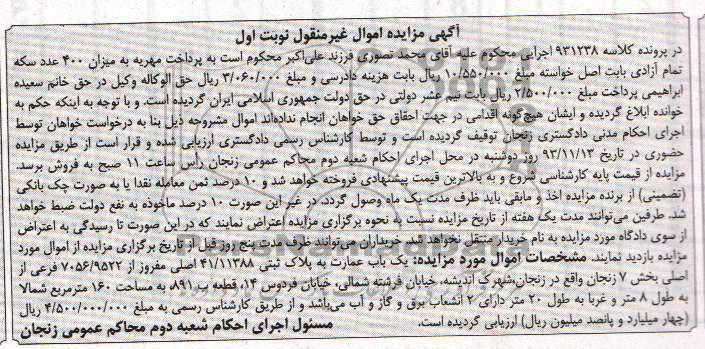 آگهی مزایده اموال غیرمنقول نوبت اول
در پرونده کلاسه ۹۳۱۲۳۸ اجرایی محکوم علیه آقای محمد تصوری فرزند علی‌اکبر محکوم است به پرداخت مهریه به میزان ۴۰۰ عدد سکه
تمام آزادی بابت اصل خواسته مبلغ ۱۰/۵۵۰/۰۰۰ ریال بابت هزینه دادرسی و مبلغ ۳/۰۶۰/۰۰۰ ریال حق الوکاله وکیل در حق خانم سعیده
ابراهیمی پرداخت مبلغ ۲/۵۰۰/۰۰۰ ریال بابت نیم عشر دولتی در حق دولت جمهوری اسلامی ایران گردیده است. و با توجه به اینکه حکم به
خوانده ابلاغ گردیده و ایشان هیچ‌گونه اقدامی در جهت احقاق حق خواهان انجام نداده‌اند اموال مشروحه ذیل بنا به درخواست خواهان توسط
اجرای احکام مدنی دادگستری زنجان توقیف گردیده است و توسط کارشناس رسمی دادگستری ارزیابی شده و قرار است از طریق مزایده
حضوری در تاریخ ۹۳/۱۱/۱۳ روز دوشنبه در محل اجرای احکام شعبه دوم محاکم عمومی زنجان رأس ساعت ۱۱ صبح به فروش برسد.
مزایده از قیمت پایه کارشناسی شروع و به بالاترین قیمت پیشنهادی فروخته خواهد شد و ۱۰ درصد ثمن معامله نقدا یا به صورت چک بانکی
(تضمینی) از برنده مزایده اخذ و مابقی باید ظرف مدت یک ماه وصول گردد. در غیر این صورت ۱۰ درصد ماخوذه به نفع دولت ضبط خواهد
شد. طرفین می‌توانند مدت یک هفته از تاریخ مزایده نسبت به نحوه برگزاری مزایده اعتراض نمایند که در این صورت تا رسیدگی به اعتراض
از سوی دادگاه مورد مزایده به نام خریدار منتقل نخواهد شد. خریداران می‌توانند ظرف مدت پنج روز قبل از تاریخ برگزاری مزایده از اموال مورد
مزایده بازدید نمایند. مشخصات اموال مورد مزایده: یک باب عمارت به پلاک ثبتی ۴۱/۱۱۳۸۸ اصلی مفروز از ۷۰۵۶/۹۵۲۲ فرعی از
اصلی بخش ۷ زنجان واقع در زنجان،شهرک اندیشه، خیابان فرشته شمالی، خیابان فردوس ۱۴، قطعه ب ۸۹۱، به مساحت ۱۶۰ مترمربع شمالا
به طول ۸ متر و غربا به طول ۲۰ متر دارای ۲ انشعاب برق و گاز و آب می‌باشد و از طریق کارشناس رسمی به مبلغ ۴/۵۰۰/۰۰۰/۰۰۰ ریال
(چهار میلیارد و پانصد میلیون ریال) ارزیابی گردیده است. مسئول اجرای احکام شعبه دوم محاکم عمومی زنجان